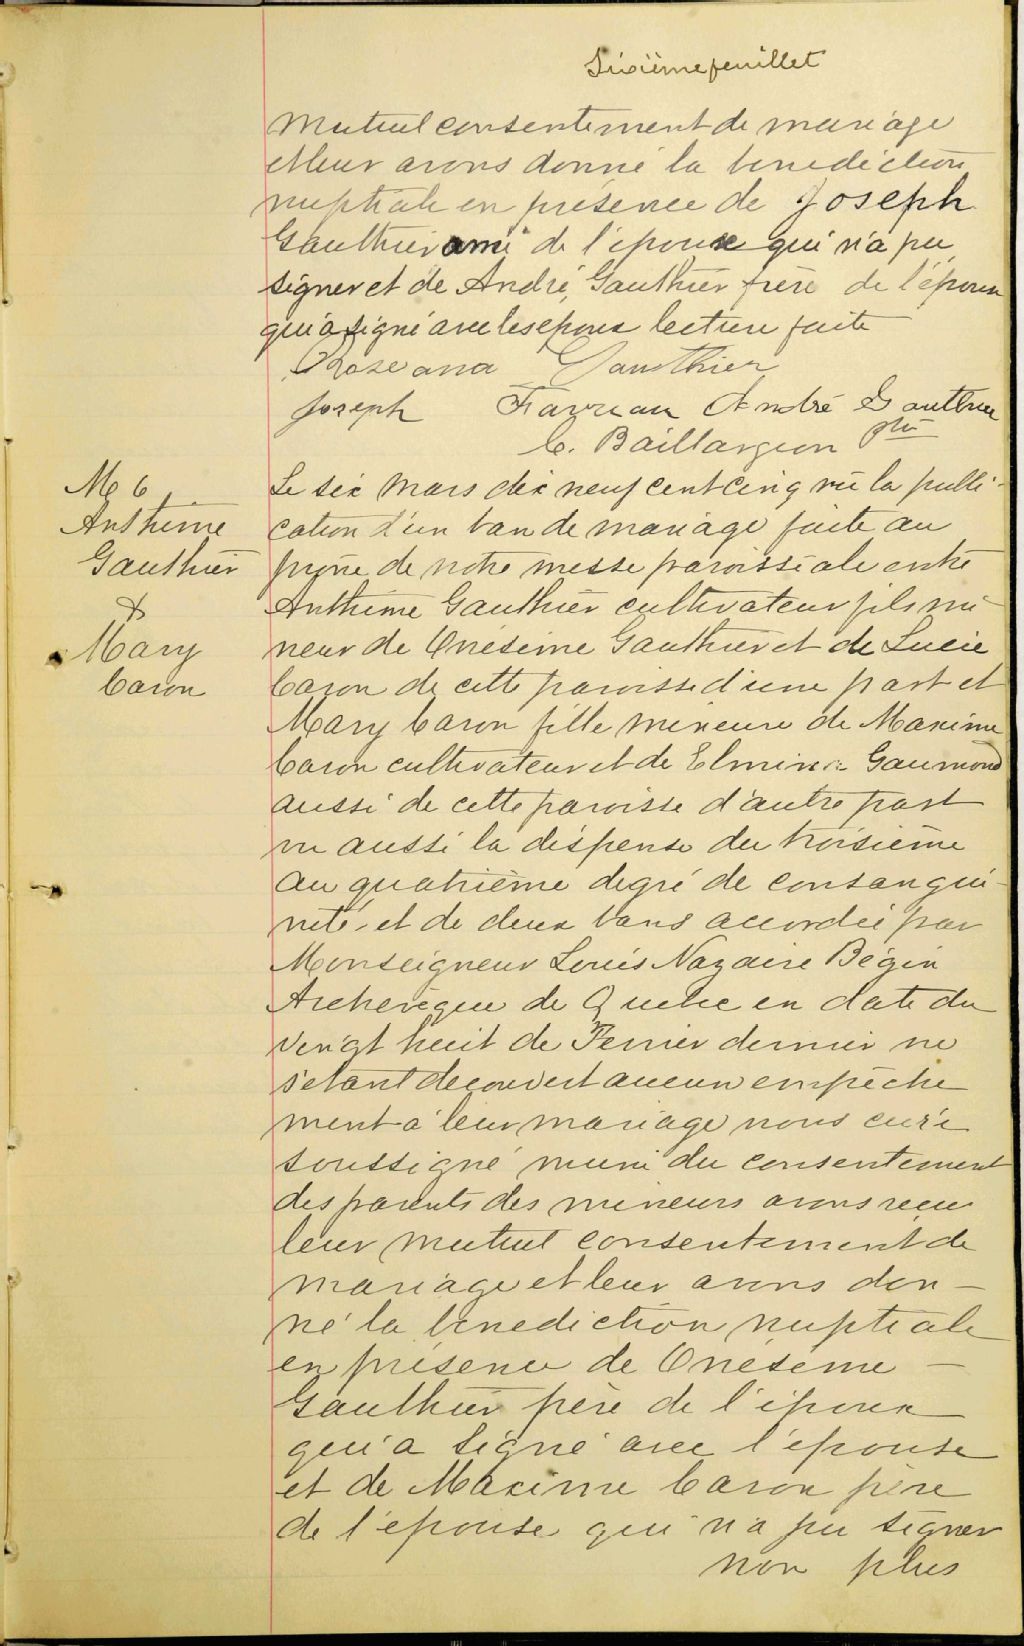 Sixième feuillet
mutuel consentement de mariage
et leur avons donné la benediction
nuptiale en présence de Joseph
Gauthier ami de l'époux qui n'a pu
signer et de André Gauthier frère de l'époux
qui a signé avec les epoux lecture faite
Roseanna Gauthier
Joseph Favreau André Gauthier
C. Baillargeon ptre
M 6
Anthime
Gauthier
&
Mary
Caron
Le six Mars dix neuf cent cinq vu la publi-
cation d'un ban de mariage faite au
prône de notre messe paroissiale entre
Anthime Gauthier cultivateur fils mi-
neur de Onésime Gauthier et de Lucie
Caron de cette paroisse d'une part et
Mary Caron fille mineure de Maxime
Caron cultivateur et de Elmina Gaumond
aussi de cette paroisse d'autre part
vu aussi la dispense du troisième
au quatrième degré de consangui-
nité et de deux bans accordée par
Monseigneur Louis Nazaire Bégin
Archevêque de Quebec en date du
vingt huit de Fevrier dernier ne
s'etant decouvert aucun empêche
ment à leur mariage nous curé
soussigné muni du consentement
des parents des mineurs avons recu
leur mutuel consentement de
mariage et leur avons don-
né la benediction nuptiale
en présence de Onésime
Gauthier père de l'époux
qui a signé avec l'epouse
et de Maxime Caron père
de l'epouse qui n'a pu signer
non plus